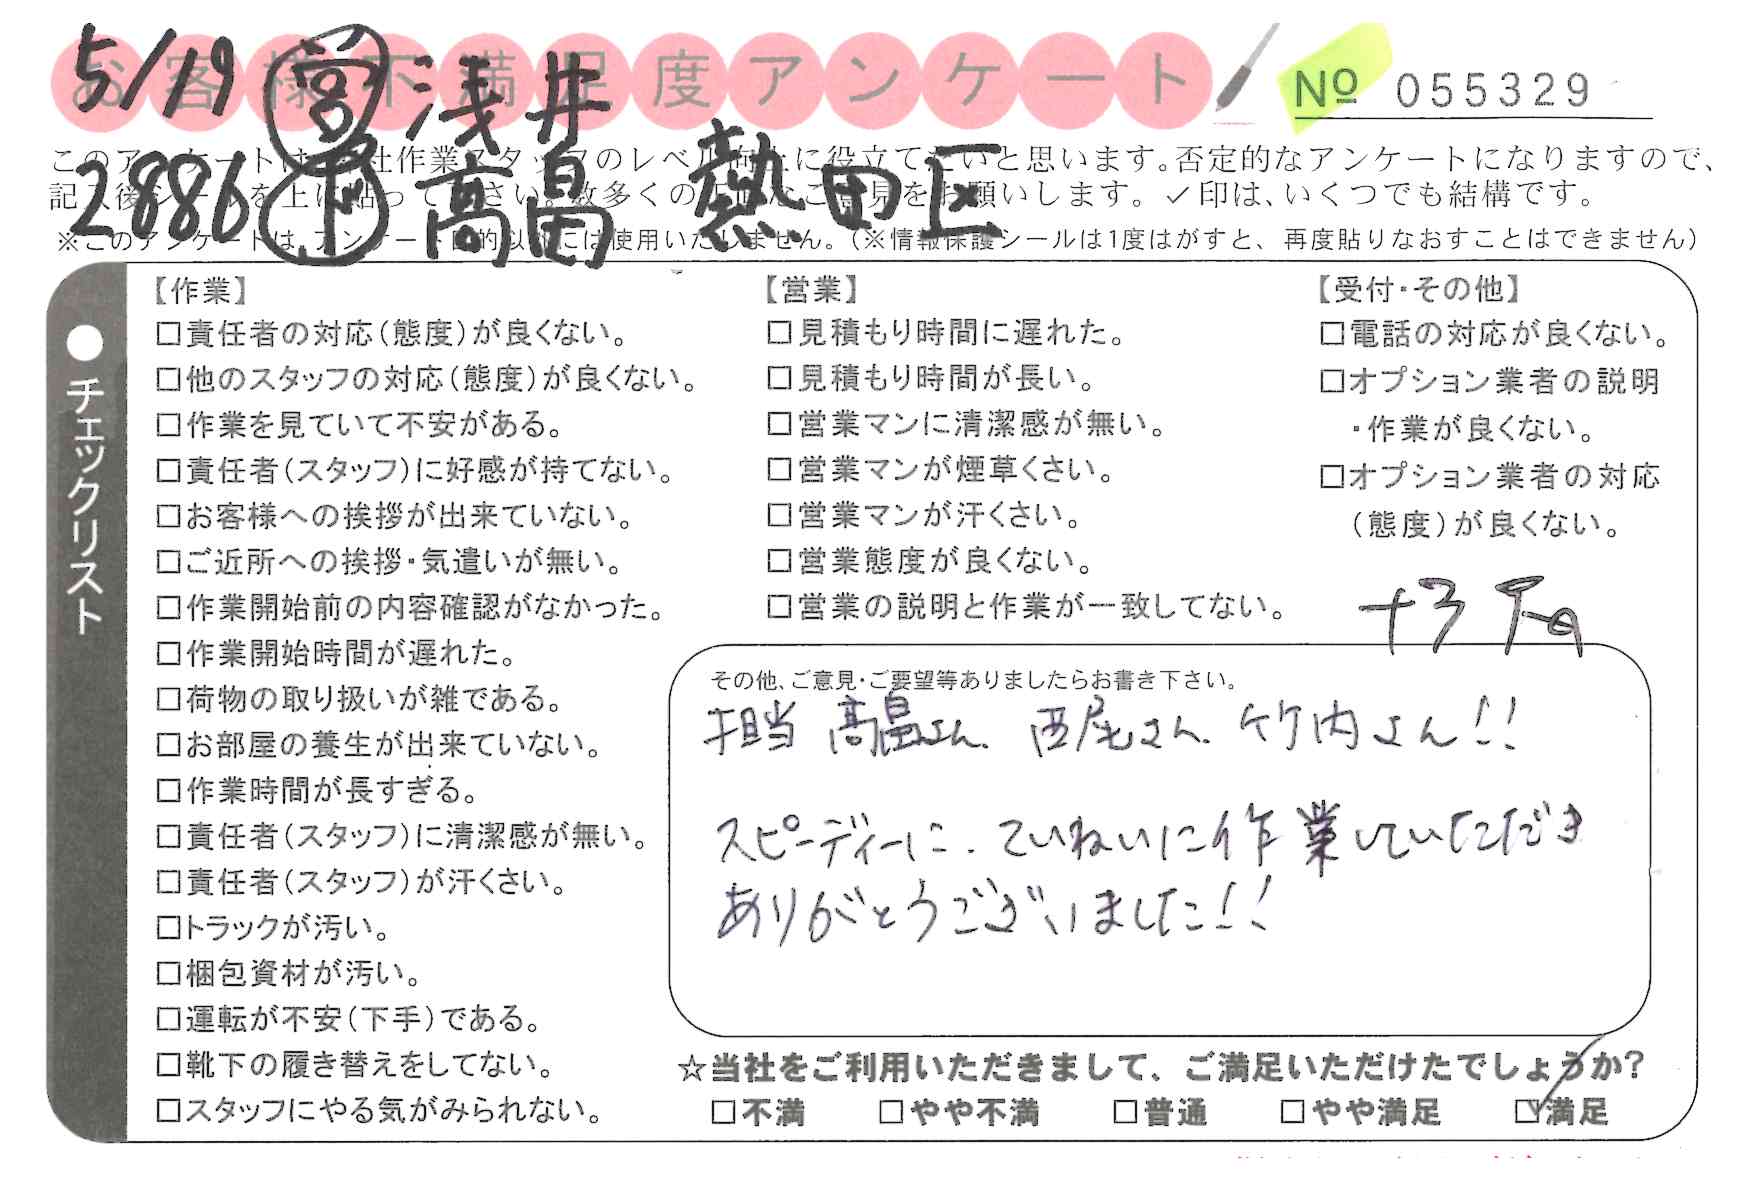 お客様不満足度アンケート
№ 055329
5/19 営 浅井
2886 下 高畠 熱田区
このアンケートは 社作業スタッフのレベル向上に役立てたいと思います。否定的なアンケートになりますので、
記入後シールを上に貼って 下さい。数多くの 正直なご意見をお願いします。✓印は、いくつでも結構です。
※このアンケートは、アンケート目的以外には使用いたしません。(※情報保護シールは1度はがすと、再度貼りなおすことはできません)
●チェックリスト
【作業】
□責任者の対応(態度)が良くない。
□他のスタッフの対応(態度)が良くない。
□作業を見ていて不安がある。
□責任者(スタッフ)に好感が持てない。
□お客様への挨拶が出来ていない。
□ご近所への挨拶・気遣いが無い。
□作業開始前の内容確認がなかった。
□作業開始時間が遅れた。
□荷物の取り扱いが雑である。
□お部屋の養生が出来ていない。
□作業時間が長すぎる。
□責任者(スタッフ)に清潔感が無い。
□責任者(スタッフ)が汗くさい。
□トラックが汚い。
□梱包資材が汚い。
□運転が不安(下手)である。
□靴下の履き替えをしてない。
□スタッフにやる気がみられない。
【営業】
□見積もり時間に遅れた。
□見積もり時間が長い。
□営業マンに清潔感が無い。
□営業マンが煙草くさい。
□営業マンが汗くさい。
□営業態度が良くない。
□営業の説明と作業が一致してない。
【受付・その他】
□電話の対応が良くない。
□オプション業者の説明
・作業が良くない。
□オプション業者の対応
(態度)が良くない。
+3
その他、ご意見・ご要望等ありましたらお書き下さい。
担当 高畠さん、西尾さん、竹内さん!!
スピーディーに、ていねいに作業していただき
ありがとうございました!!
☆当社をご利用いただきまして、ご満足いただけたでしょうか?
□不満 □やや不満 □普通 □やや満足 ☑満足